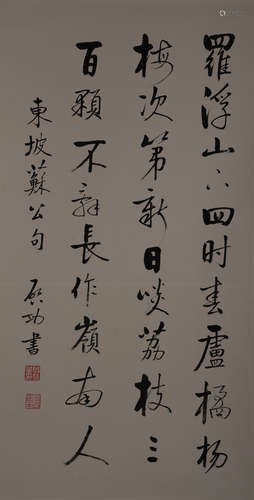 羅浮山下四时春盧橘楊
梅次第新日啖荔枝三
百顆不辭長作嶺南人
東坡蘇公句 啟功書